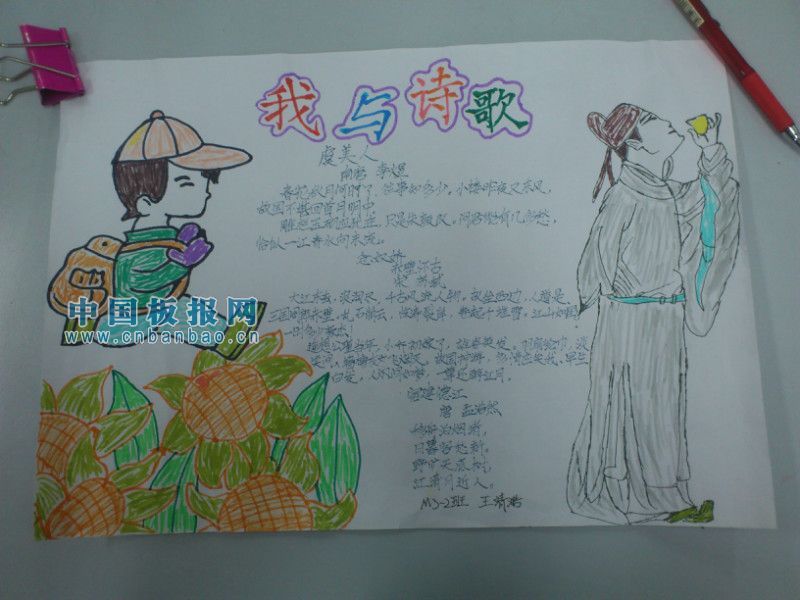 我与诗歌
虞美人
南唐 李煜
春花秋月何时了,往事知多少。小楼昨夜又东风,
故国不堪回首月明中
雕栏玉砌应犹在,只是朱颜改。问君能有几多愁
恰似一江春水向东流。
念奴娇
赤壁怀古
宋 苏轼
大江东去,浪淘尽,千古风流人物,故垒西边,人道是
三国周郎赤壁,乱石
江山如画
一时多少豪杰!
遥想公瑾当年,小乔初嫁了,雄姿英发。羽扇纶巾,谈
笑间,
故国神游,多情应笑我,早生
华发,人间如梦,一尊还酹江月。
宿建德江
唐 孟浩然
移舟泊烟渚,
日暮客愁新。
野旷天低树,
江清月近人。
M3-2班 王
中国板报网
www.cnbanbao.cn